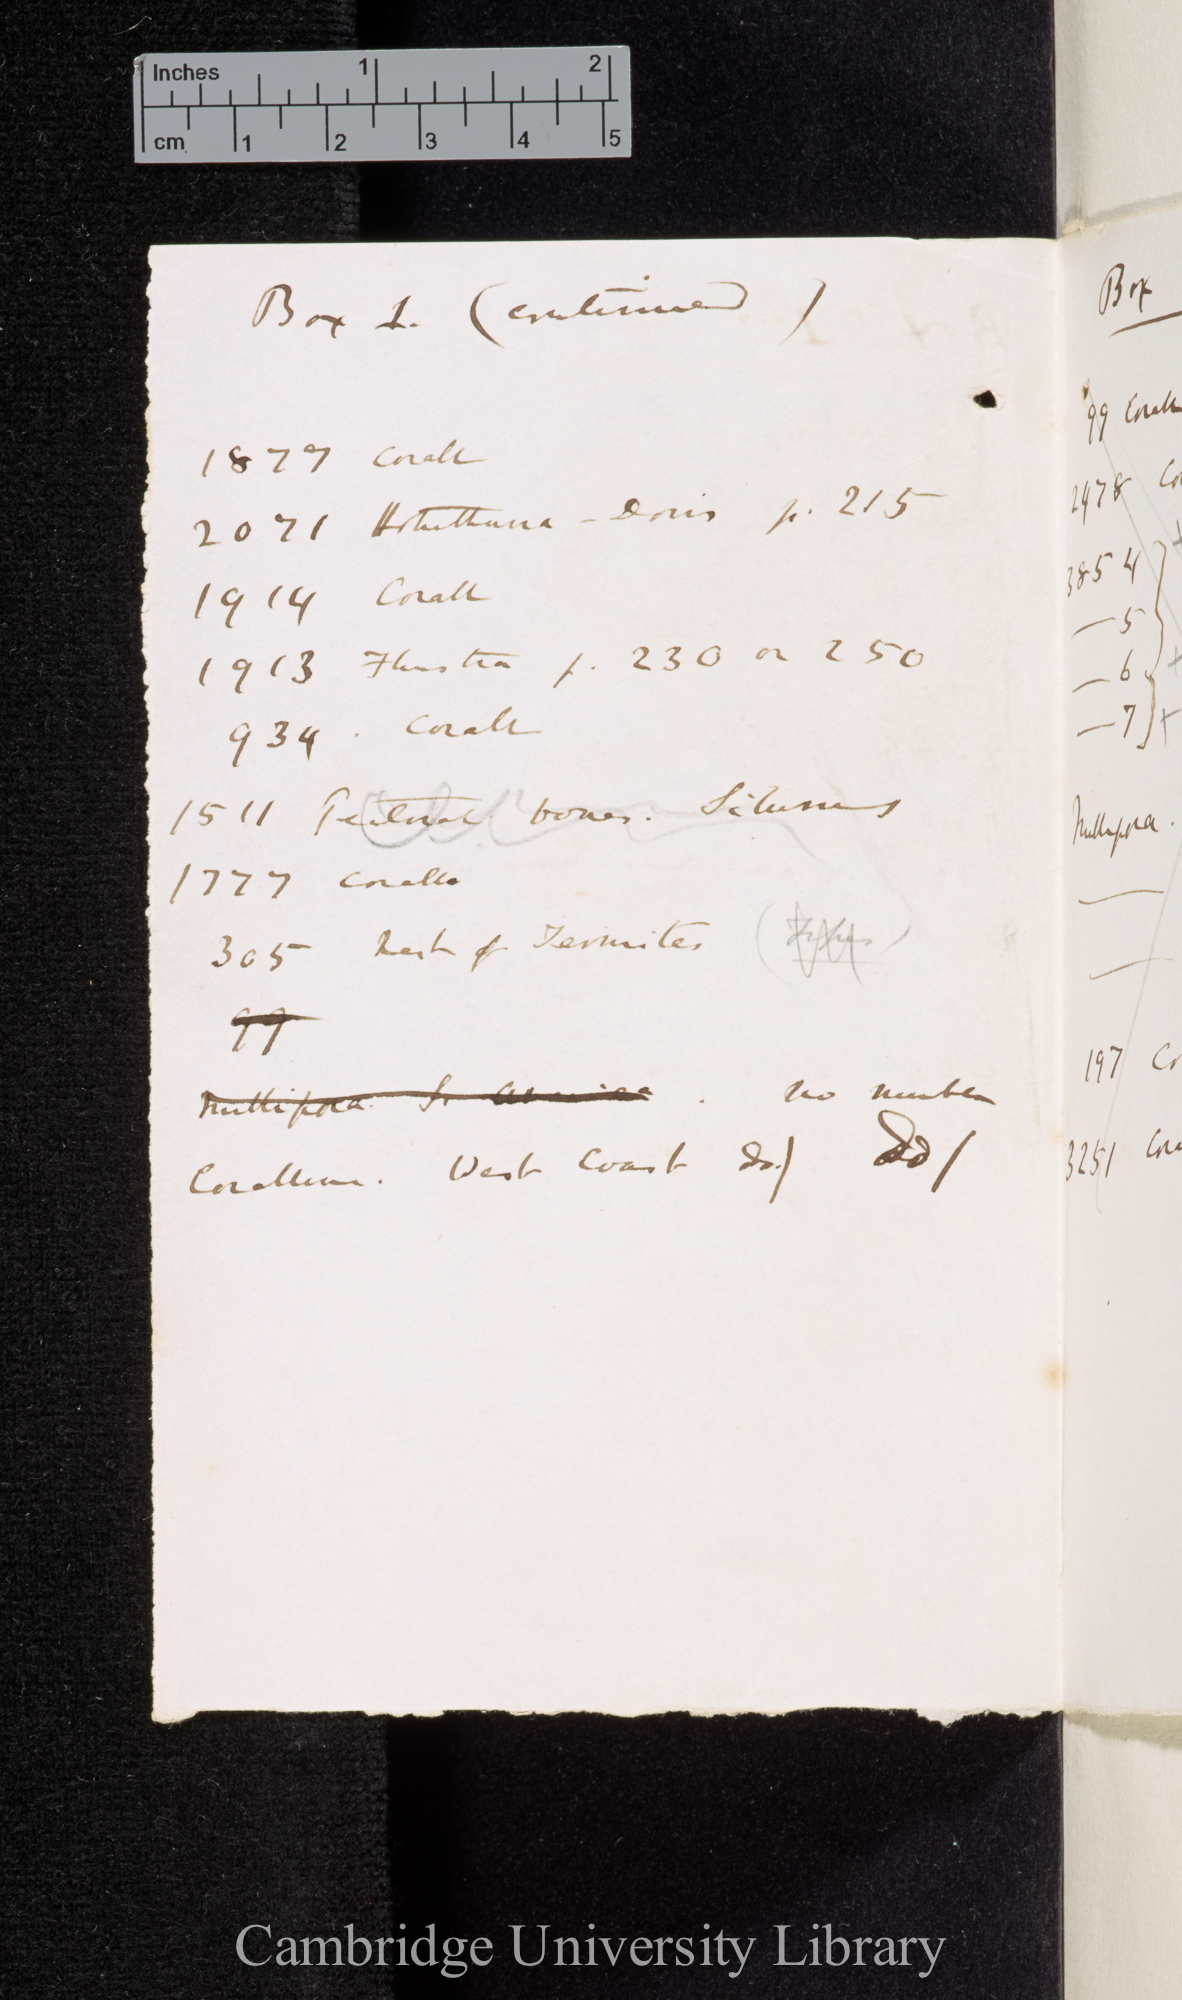 Inches 1 2
cm 1 2 3 4 5
Box 1. (continued)
1877 Corall
2071 Holuthuria - Doris p. 215
1914 Corall
1913 Flustra p. 230 or 250
934. Corall
1511 Pectoral bones. Silurus
1777 Corall
305 Nest of Termites
99
Nullipora S. America. no number
Corallium. West Coast do/ do/
Box
99 Corall
2478 Co
3854
—5
—6
—7
Nullipora.
197 Co
3251 Cora
Cambridge University Library